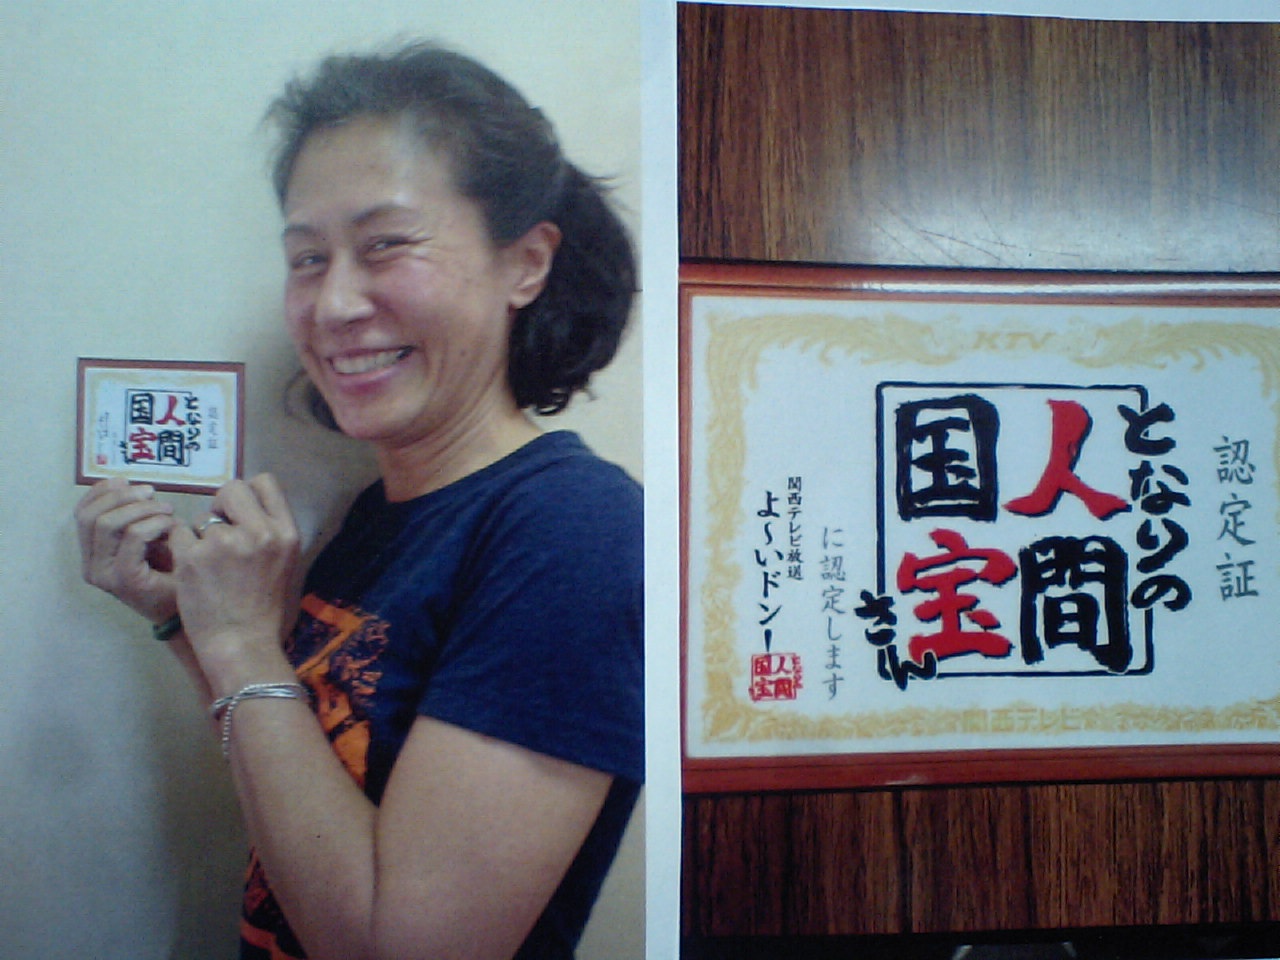 認定証
となりの
人間
国宝
さん
KTV
認定証
となりの
人間
国宝
さん
に認定します
関西テレビ放送
よ〜いドン！
となりの
人間
国宝
関西テレビ